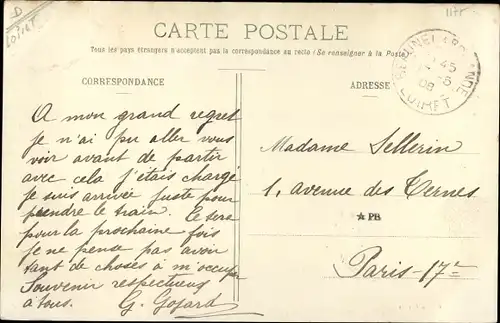 D
LOIRET
1175
CARTE POSTALE
Tous les pays étrangers n'acceptent pas la correspondance au recto (Se renseigner à la Poste)
CORRESPONDANCE
ADRESSE
45
08
LOIRET
A mon grand regret
je n'ai pu aller vous
voir avant de partir
avec cela j'étais chargé
je suis arrivée juste pour
prendre le train. Ce sera
pour la prochaine fois
je ne pense pas avoir
tant de choses à m'occuper
Souvenir respectueux
à tous. G. Gofard
Madame Sellerin
1, avenue des Ternes
★ PH
Paris-17e